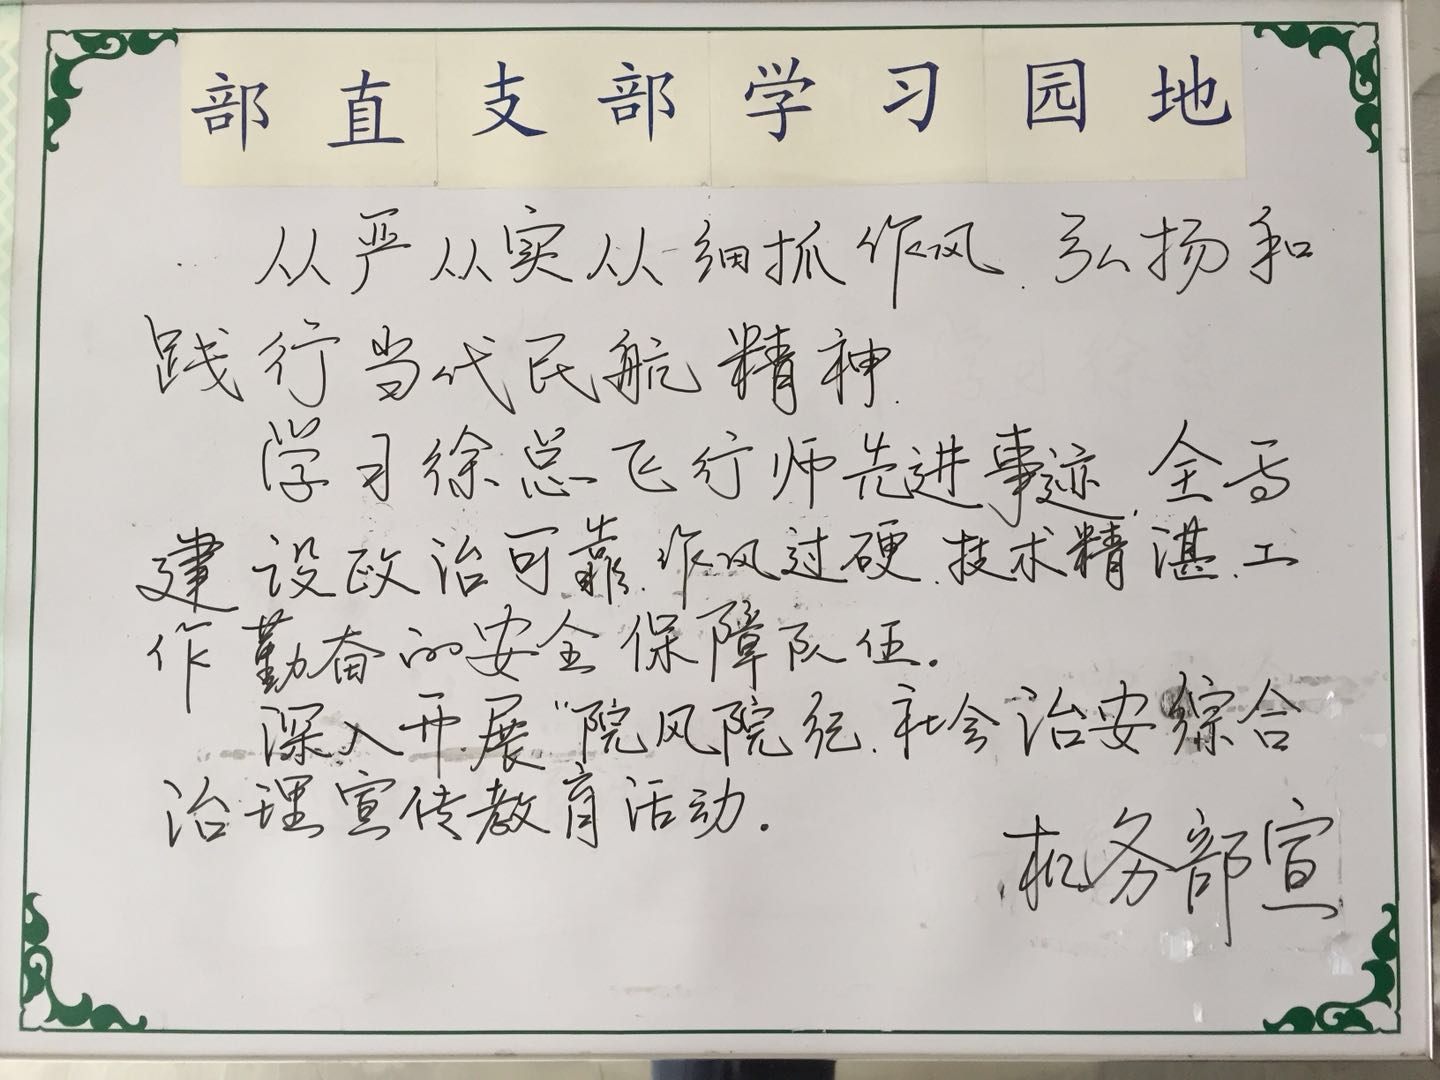 部直支部学习园地
从严从实从细抓作风、弘扬和
践行当代民航精神.
学习徐总飞行师先进事迹、全与
建设政治可靠、作风过硬、技术精湛、工
作勤奋的安全保障队伍.
深入开展“院风院纪、社会治安综合
治理宣传教育活动.
机务部宣